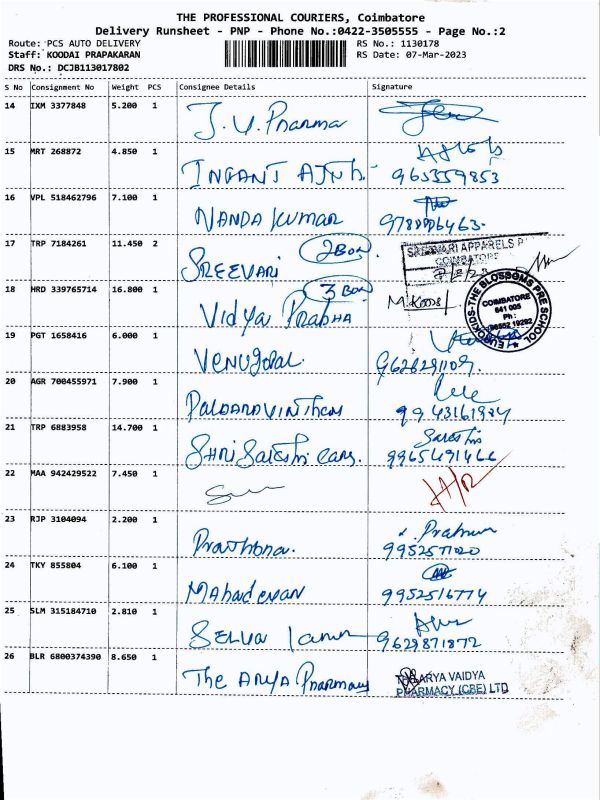 THE PROFESSIONAL COURIERS, Coimbatore
Delivery Runsheet - PNP - Phone No.:0422-3505555 - Page No.:2
Route: PCS AUTO DELIVERY RS No.: 1130178
Staff: KOODAI PRAPAKARAN RS Date: 07-Mar-2023
DRS No.: DCJB113017802
S No Consignment No Weight PCS Consignee Details Signature
14 IXM 3377848 5.200 1 J.V. Pharma
15 MRT 268872 4.850 1 INFANT 965359853
16 VPL 518462796 7.100 1 NANDA KUMAR
17 TRP 7184261 11.450 2 SREEVARI 2 Box SREEVARI APPARELS
COIMBATORE
18 HRD 339765714 16.800 1 Vidya Prabha 3 Box EUROKIDS-THE BLOSSOMS PRE SCHOOL
COIMBATORE
641 005
Ph :
96552 19292
19 PGT 1658416 6.000 1 VENUGOPAL 9628291109.
20 AGR 700455971 7.900 1
21 TRP 6883958 14.700 1 SHRI Cars.
22 MAA 942429522 7.450 1
23 RJP 3104094 2.200 1 Prarthana.
24 TKY 855804 6.100 1 Mahadevan 9952516774
25 SLM 315184710 2.810 1 SELVA 9629871872
26 BLR 6800374390 8.650 1 The Arya Pharmacy ARYA VAIDYA
PHARMACY (CBE) LTD